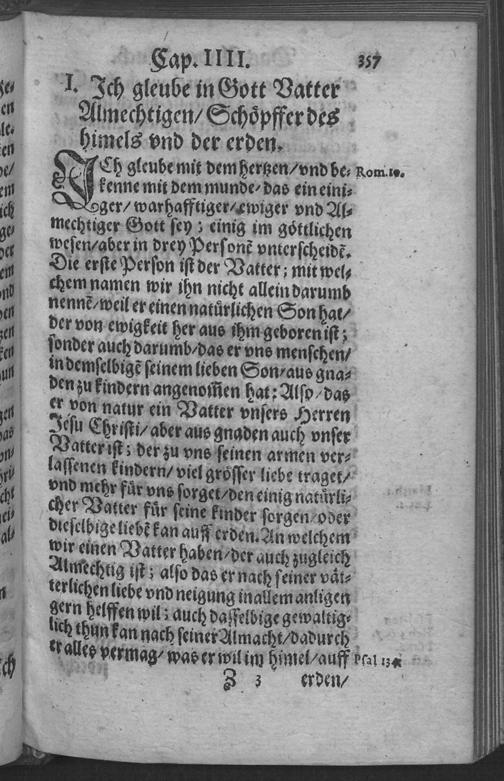 Cap. IIII. 357
I. Ich gleube in Gott Vatter
Almechtigen/ Schöpffer des
himels vnd der erden.
ICh gleube mit dem hertzen/ vnd be- Rom. 10.
kenne mit dem munde/ das ein eini-
ger/ warhafftiger/ ewiger vnd Al-
mechtiger Gott sey; einig im göttlichen
wesen/ aber in drey Personē vnterscheidē.
Die erste Person ist der Vatter; mit wel-
chem namen wir ihn nicht allein darumb
nennē/ weil er einen natürlichen Son hat/
der von ewigkeit her aus ihm geboren ist;
sonder auch darumb/ das er vns menschen/
in demselbigē seinem lieben Son/ aus gna-
den zu kindern angenom̄en hat: Also/ das
er von natur ein Vatter vnsers Herren
Jesu Christi/ aber aus gnaden auch vnser
Vatter ist; der zu vns seinen armen ver-
lassenen kindern/ viel grösser liebe traget/
vnd mehr für vns sorget/ den einig natürli-
cher Vatter für seine kinder sorgen/ oder
dieselbige liebē kan auff erden. An welchem
wir einen Vatter haben/ der auch zugleich
Almechtig ist; also das er nach seiner vät-
terlichen liebe vnd neigung in allem anligen
gern helffen wil; auch dasselbige gewaltig-
lich thun kan nach seiner Almacht/ dadurch
er alles vermag/ was er wil im himel/ auff Psal 13
Z 3 erden/